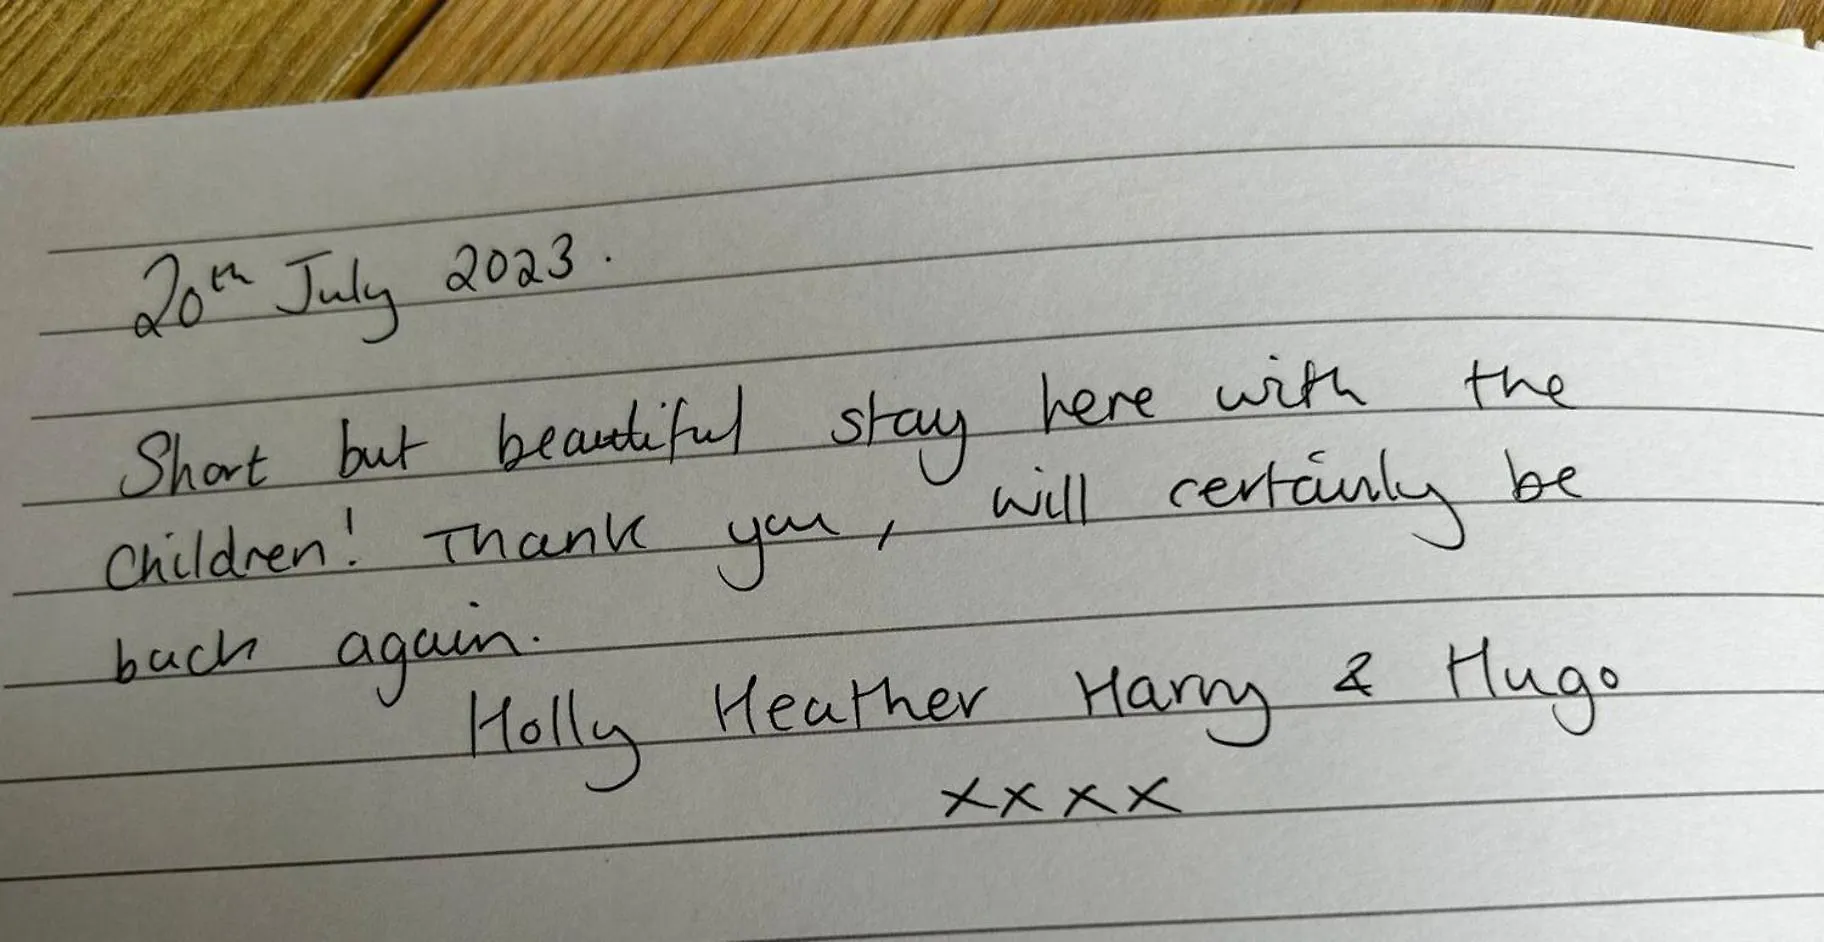 20th July 2023.
Short but beautiful stay here with the
children! Thank you, will certainly be
back again.
Holly Heather Harry & Hugo
xxxx